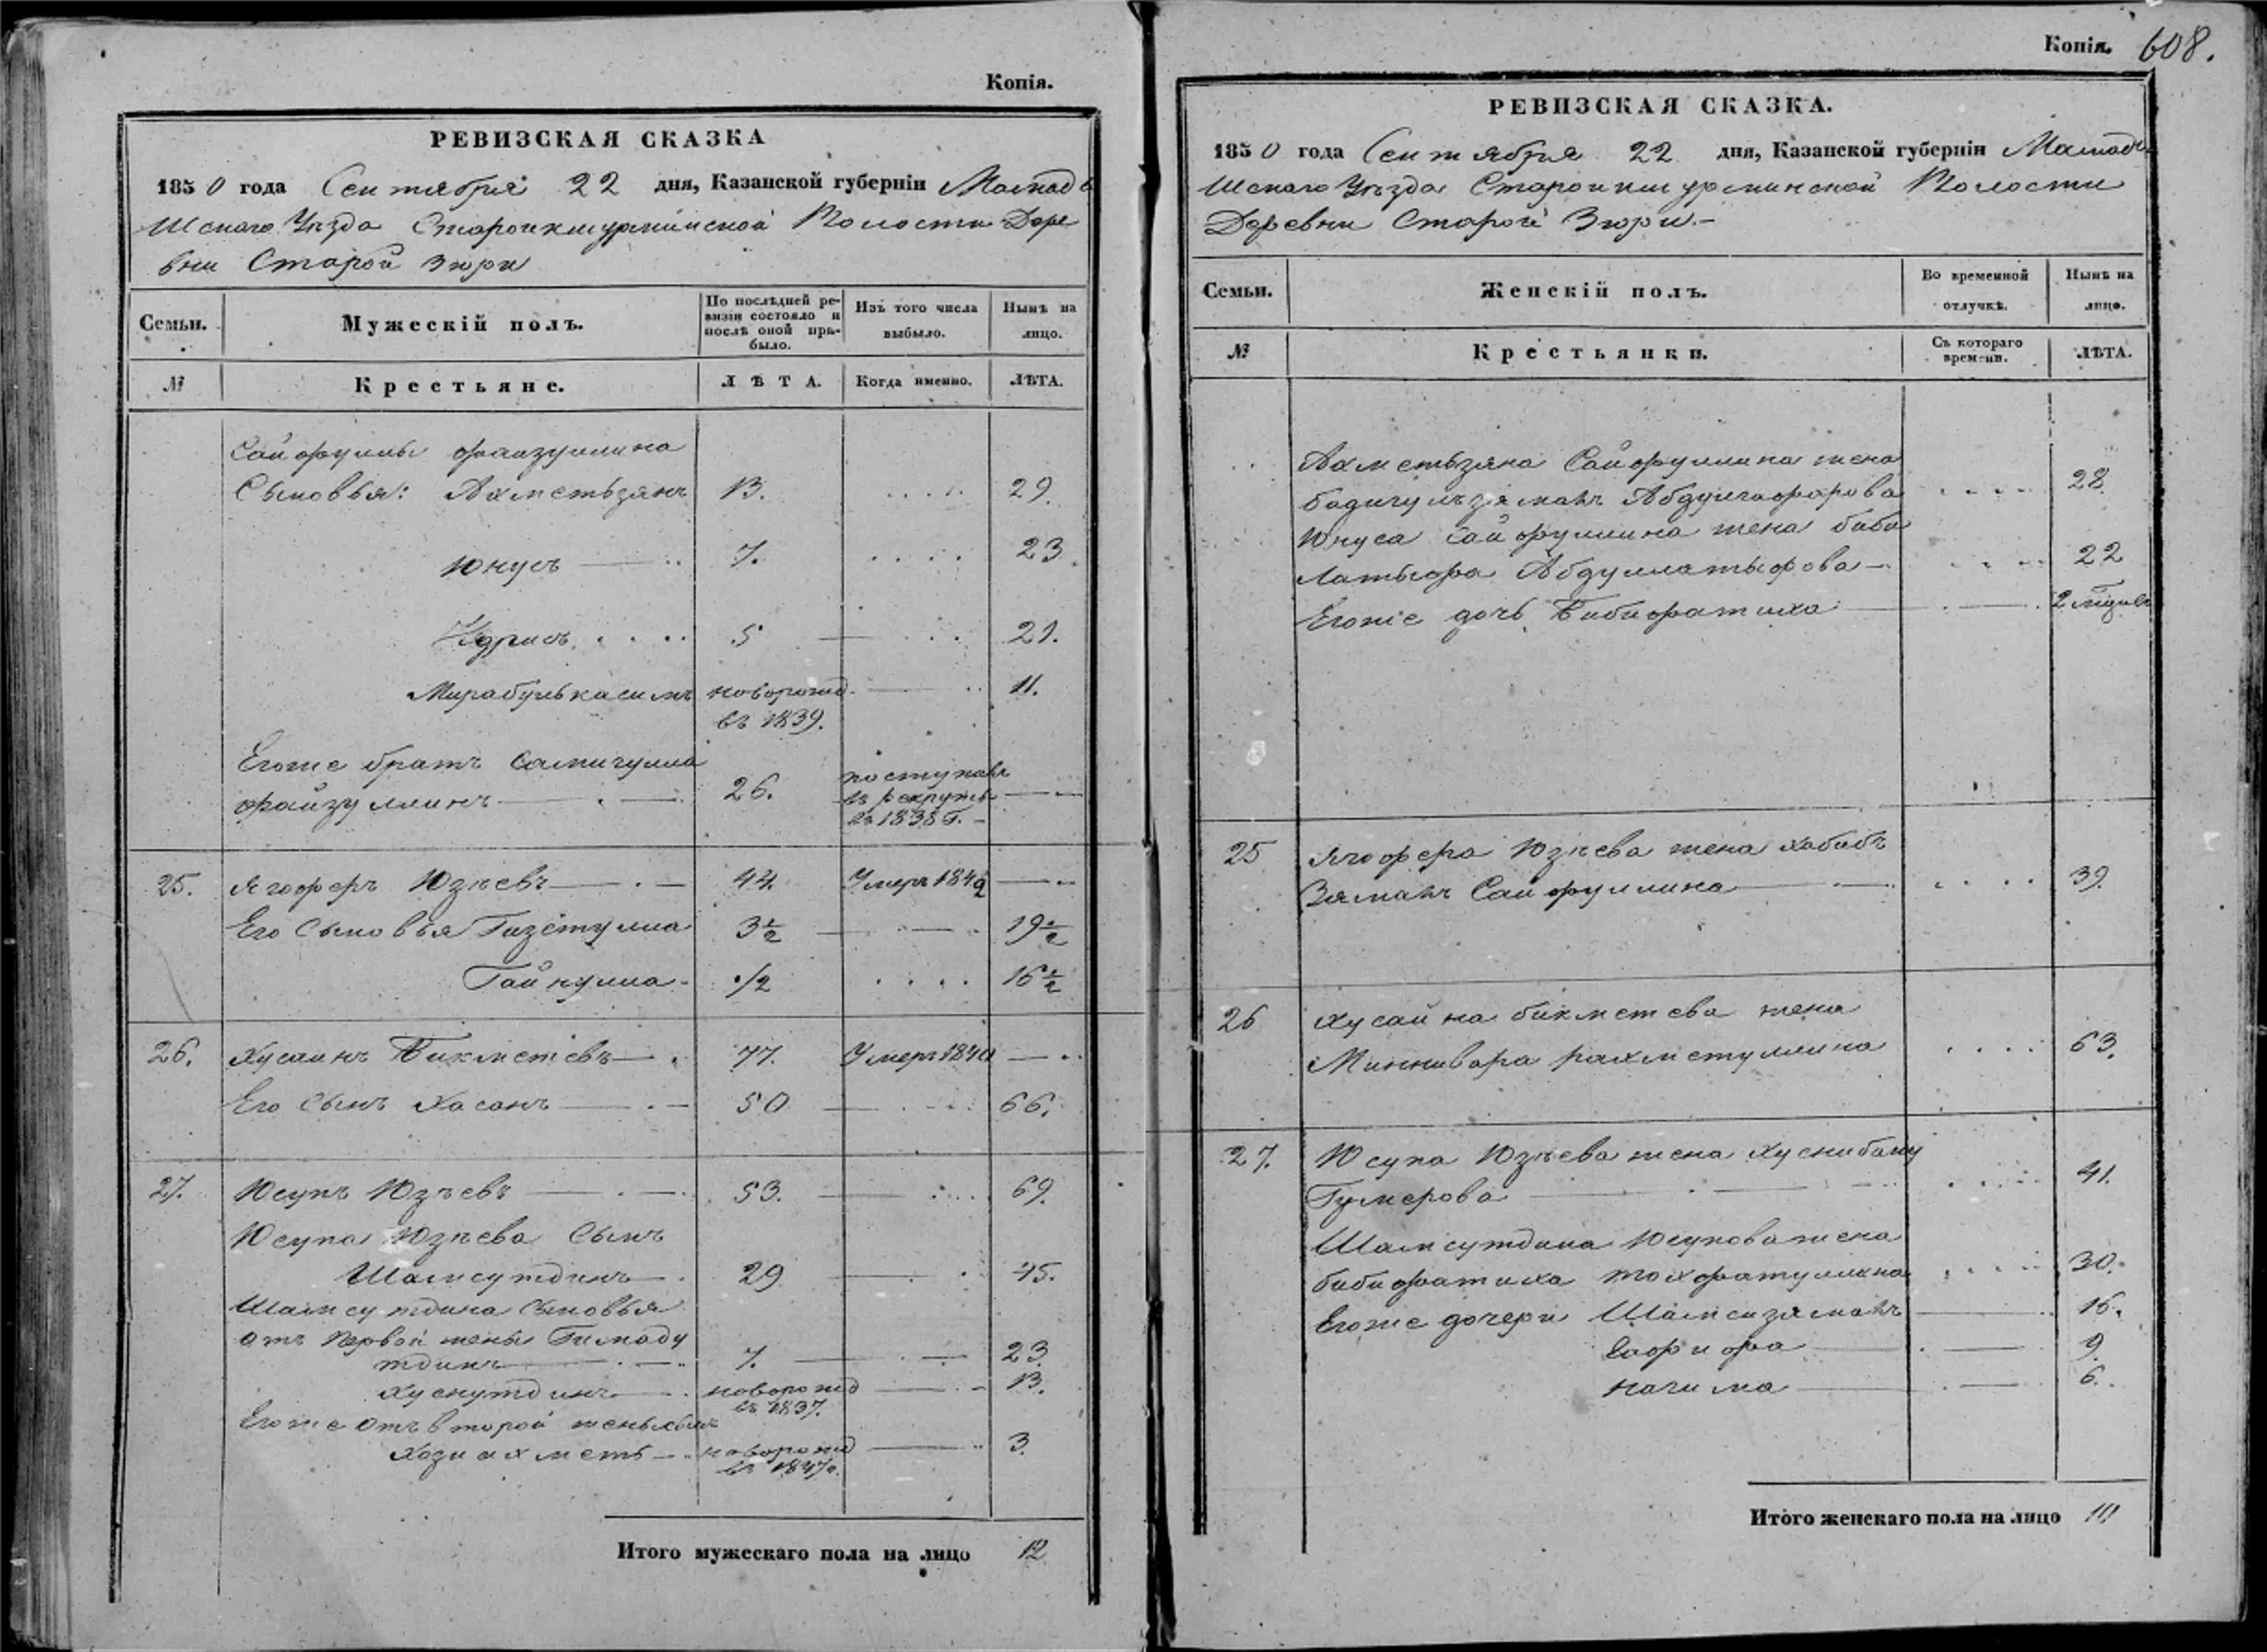 Копія.
РЕВИЗСКАЯ СКАЗКА
1850 года Сентября 22 дня, Казанской губерніи Мамады
шскаго Уѣзда Староикшурминской Волости Дере
вни Старой Зюри
Семьи. Мужескій полъ. По послѣдней ревизіи состояло и послѣ оной прибыло. Изъ того числа выбыло. Нынѣ на лицо.
№ Крестьяне. ЛѢТА. Когда именно. ЛѢТА.
Сайфуллы Файзуллина
Сыновья: Ахметьзянъ 13. 29.
Юнусъ 7. 23
Идрисъ 5 21.
Мирабулькасимъ новорожд. 11.
въ 1839.
Егоже братъ Самигулла
Файзуллинъ 26. поступилъ
въ рекруты
въ 1838 г.
25. Ягоферъ Юзѣевъ 44. Умеръ 1842
Его Сыновья Гизетулла 3½ 19½
Гайнулла ½ 16½
26. Хусаинъ Бикметевъ 77. Умеръ 1840
Его Сынъ Хасанъ 50 66.
27. Юсупъ Юзѣевъ 53. 69.
Юсупа Юзѣева Сынъ
Шамсутдинъ 29 45.
Шамсутдина Сыновья
отъ первой жены Гимаду
тдинъ 7. 23.
Хуснутдинъ новорожд 13.
въ 1837.
Егоже отъ второй жены сынъ
Хазиахметь новорожд 3.
въ 1847 г.
Итого мужескаго пола на лицо 12
Копія. 608.
РЕВИЗСКАЯ СКАЗКА.
1850 года Сентября 22 дня, Казанской губерніи Мамады
шскаго Уѣзда Староикшурминской Волости
Деревни Старой Зюри.
Семьи. Женскій полъ. Во временной отлучкѣ. Нынѣ на лицо.
№ Крестьянки. Съ котораго времени. ЛѢТА.
Ахметьзяна Сайфуллина жена
бадигульзяманъ Абдулгафарова 28.
Юнуса Сайфуллина жена биби
Латыфа Абдуллатыфова 22
Егоже дочь Бибифатиха 2
25 Ягофера Юзѣева жена Хабибъ
Зяманъ Сайфуллина 39.
26 Хусайна бикметева жена
Миннивара рахметуллина 63.
27. Юсупа Юзѣева жена Хуснибану
Гумерова 41.
Шамсутдина Юсупова жена
бибифатиха тохфатуллина 30.
Егоже дочери Шамсизяманъ 16.
Сафифа 9.
нагима 6.
Итого женскаго пола на лицо 10